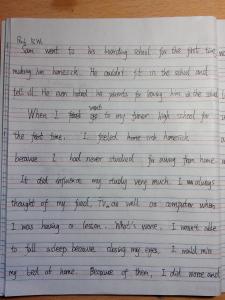 Sam went to his boarding school for the first time
making him homesick. He couldn't fit in the school and
fell ill. He even hated his parents for leaving him at the school
When I went to my junior high school for
the first time, I feeled homesick
because I had never studied far away from home
It did influence my study very much. I was always
thought of my food, TV as well as computer when
I was having a lesson. What's worse, I wasn't able
to fall asleep because closing my eyes, I would miss
my bed at home. Because of them, I did worse and